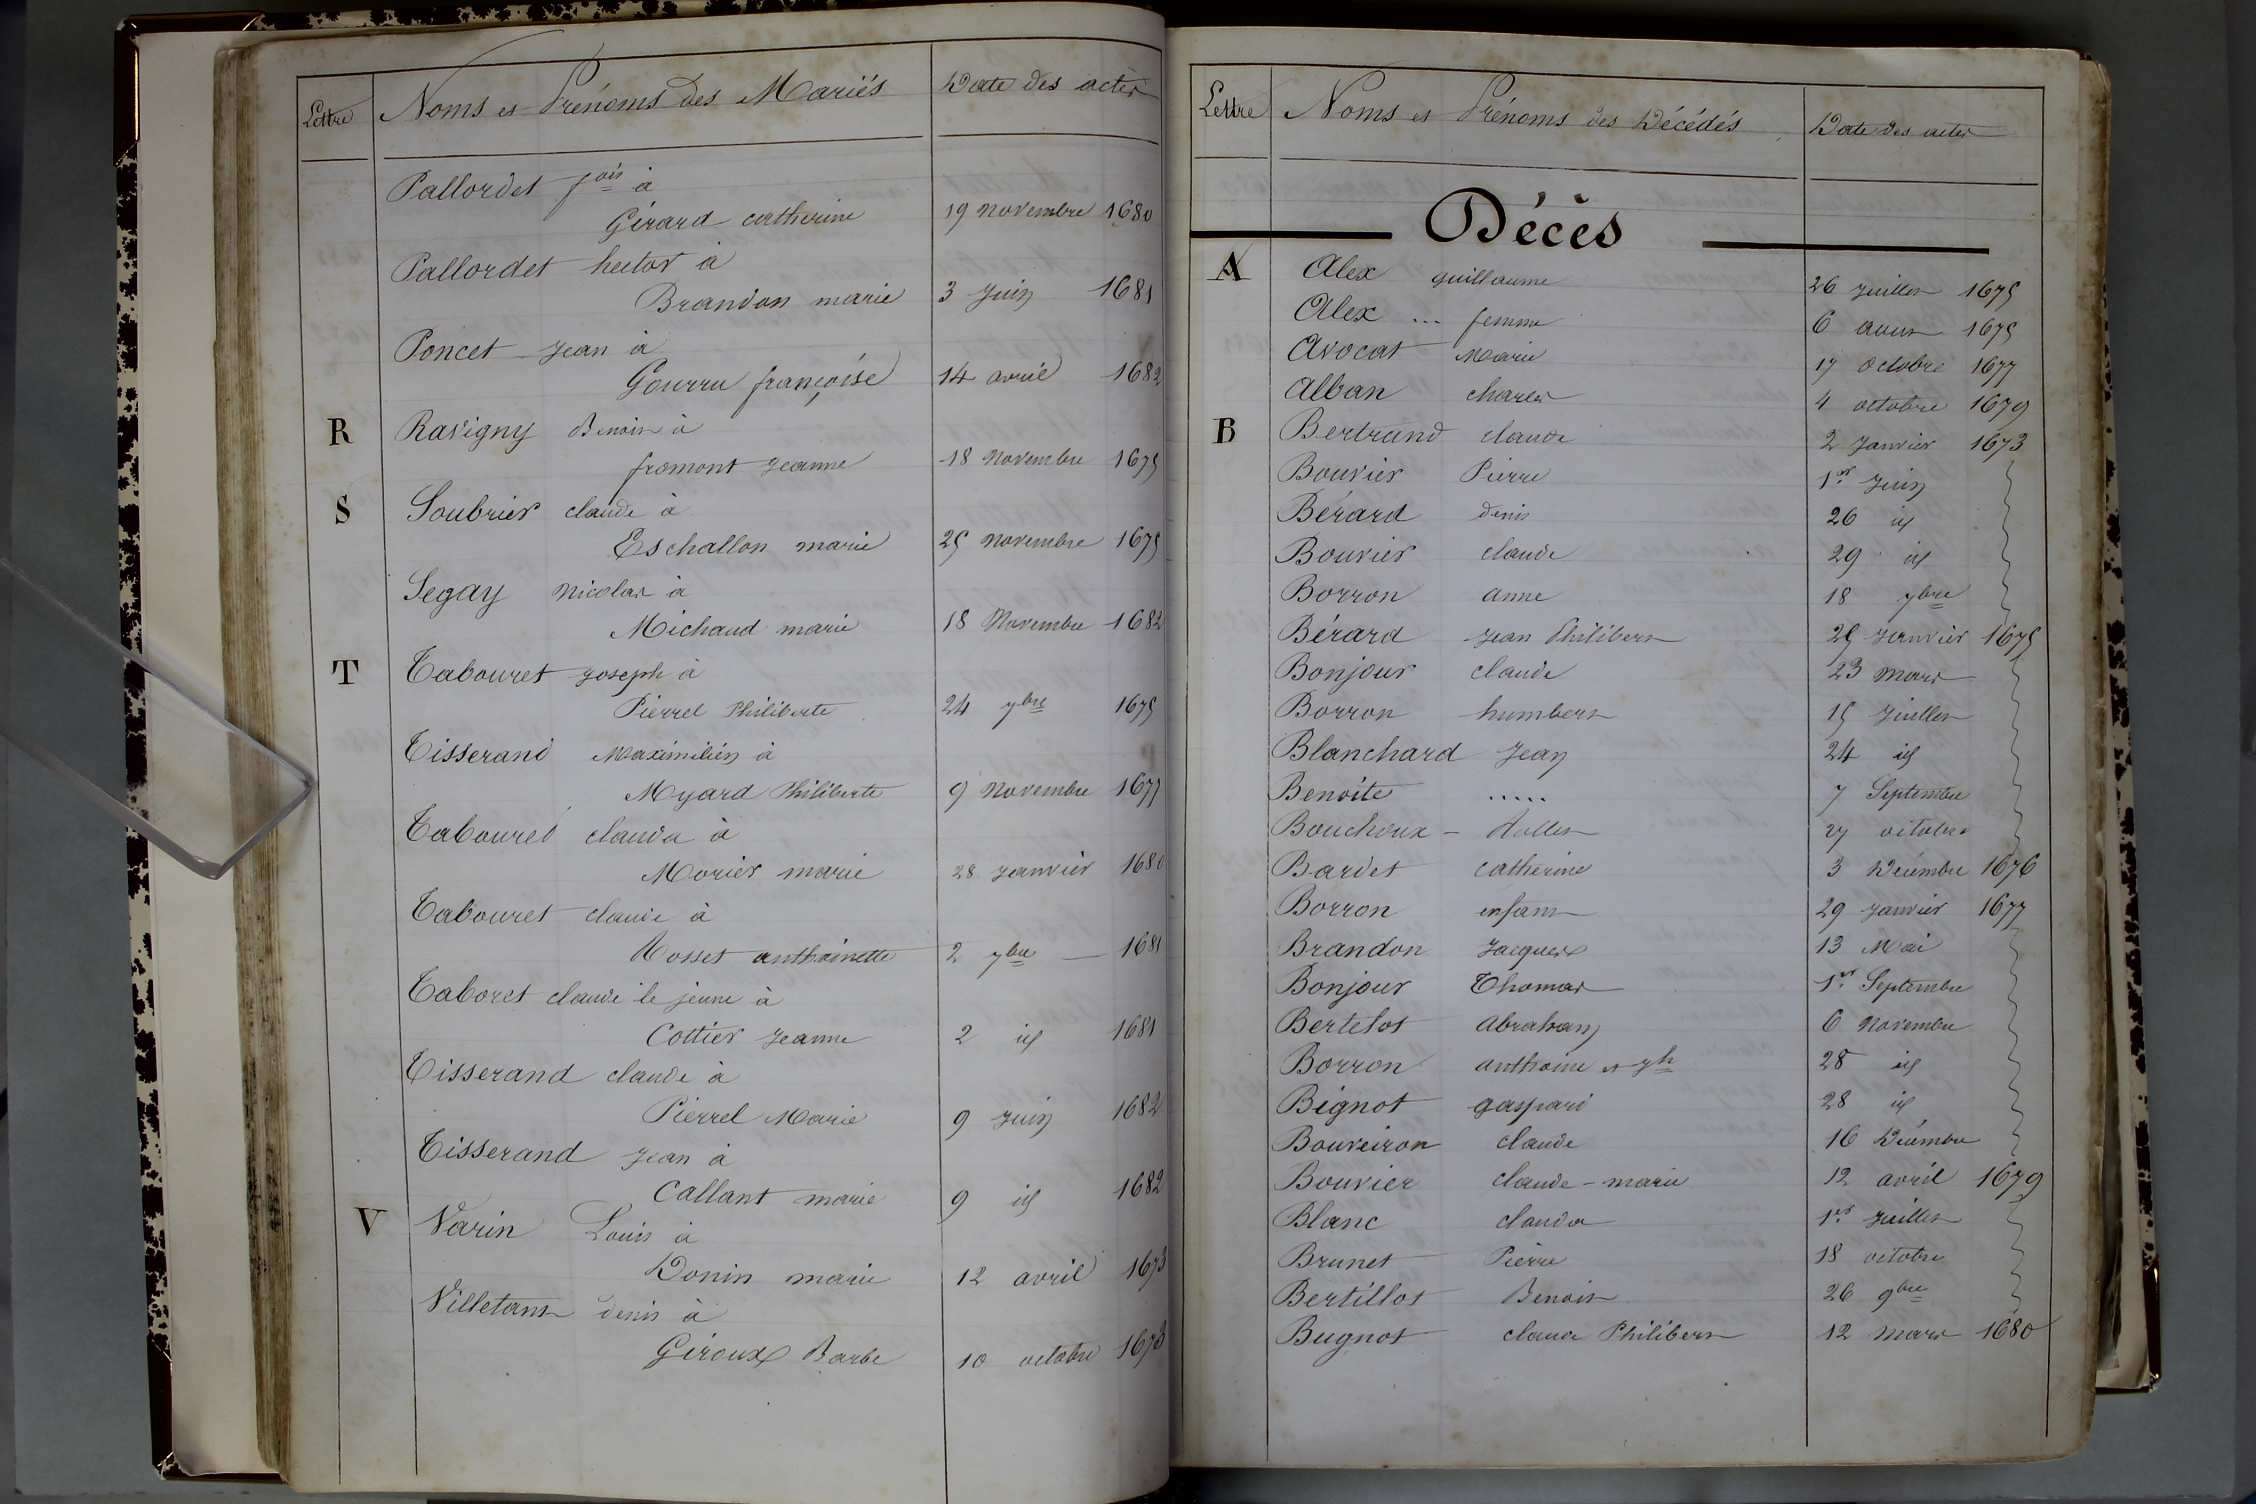 Lettre Noms et Prénoms des Mariés Date des actes
Pallordet fois à
Gérard catherine 19 novembre 1680
Pallordet hector à
Brandon marie 3 Juin 1681
Poncet Jean à
Gourru françoise 14 avril 1682
R Ravigny Benoit à
fromont Jeanne 18 novembre 1675
S Soubrier claude à
Eschallon marie 25 novembre 1675
Segay Nicolas à
Michaud marie 18 Novembre 1682
T Tabouret Joseph à
Pierrel Philiberte 24 7bre 1675
Tisserand Maximilien à
Myard Philiberte 9 Novembre 1677
Tabouret clauda à
Morier marie 28 Janvier 1680
Tabouret claude à
Rosset anthoinette 2 7bre — 1681
Taboret claude le jeune à
Cottier Jeanne 2 id 1681
Tisserand claude à
Pierrel Marie 9 Juin 1682
Tisserand Jean à
Callant marie 9 id 1682
V Varin Louis à
Donin marie 12 avril 1673
Villetant denis à
Giroux Barbe 10 octobre 1673
Lettre Noms et Prénoms des Décédés Date des actes
Décès
A Alex guillaume 26 Juillet 1675
Alex ... femme 6 aout 1675
Avocat Marie 17 Octobre 1677
Alban charles 4 octobre 1679
B Bertrand claude 2 Janvier 1673
Bouvier Pierre 1er Juin
Bérard denis 26 id
Bouvier claude 29 id
Borron anne 18 7bre
Bérard Jean Philibert 25 Janvier 1675
Bonjour claude 23 Mars
Borron humbert 15 Juillet
Blanchard Jean 24 id
Benoite ..... 7 Septembre
Bouchoux - 27 octobre
Bardet catherine 3 Décembre 1676
Borron enfant 29 Janvier 1677
Brandon Jacques 13 Mai
Bonjour Thomas 1er Septembre
Bertelot Abraham 6 Novembre
Borron anthoine et Jh 28 id
Bignot gaspard 28 id
Bouveiron claude 16 Décembre
Bouvier claude-marie 12 avril 1679
Blanc clauda 1er Juillet
Brunet Pierre 18 octobre
Bertillot Benoit 26 9bre
Bugnot claude Philibert 12 Mars 1680